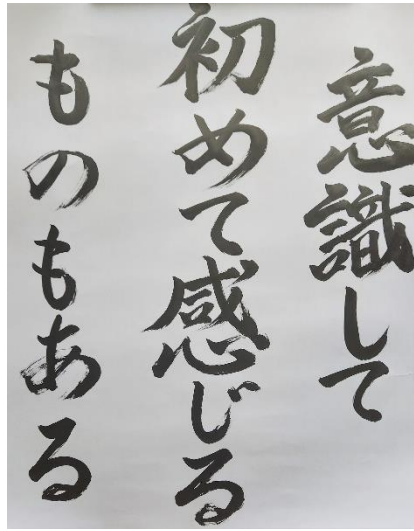 意識して
初めて感じる
ものもある